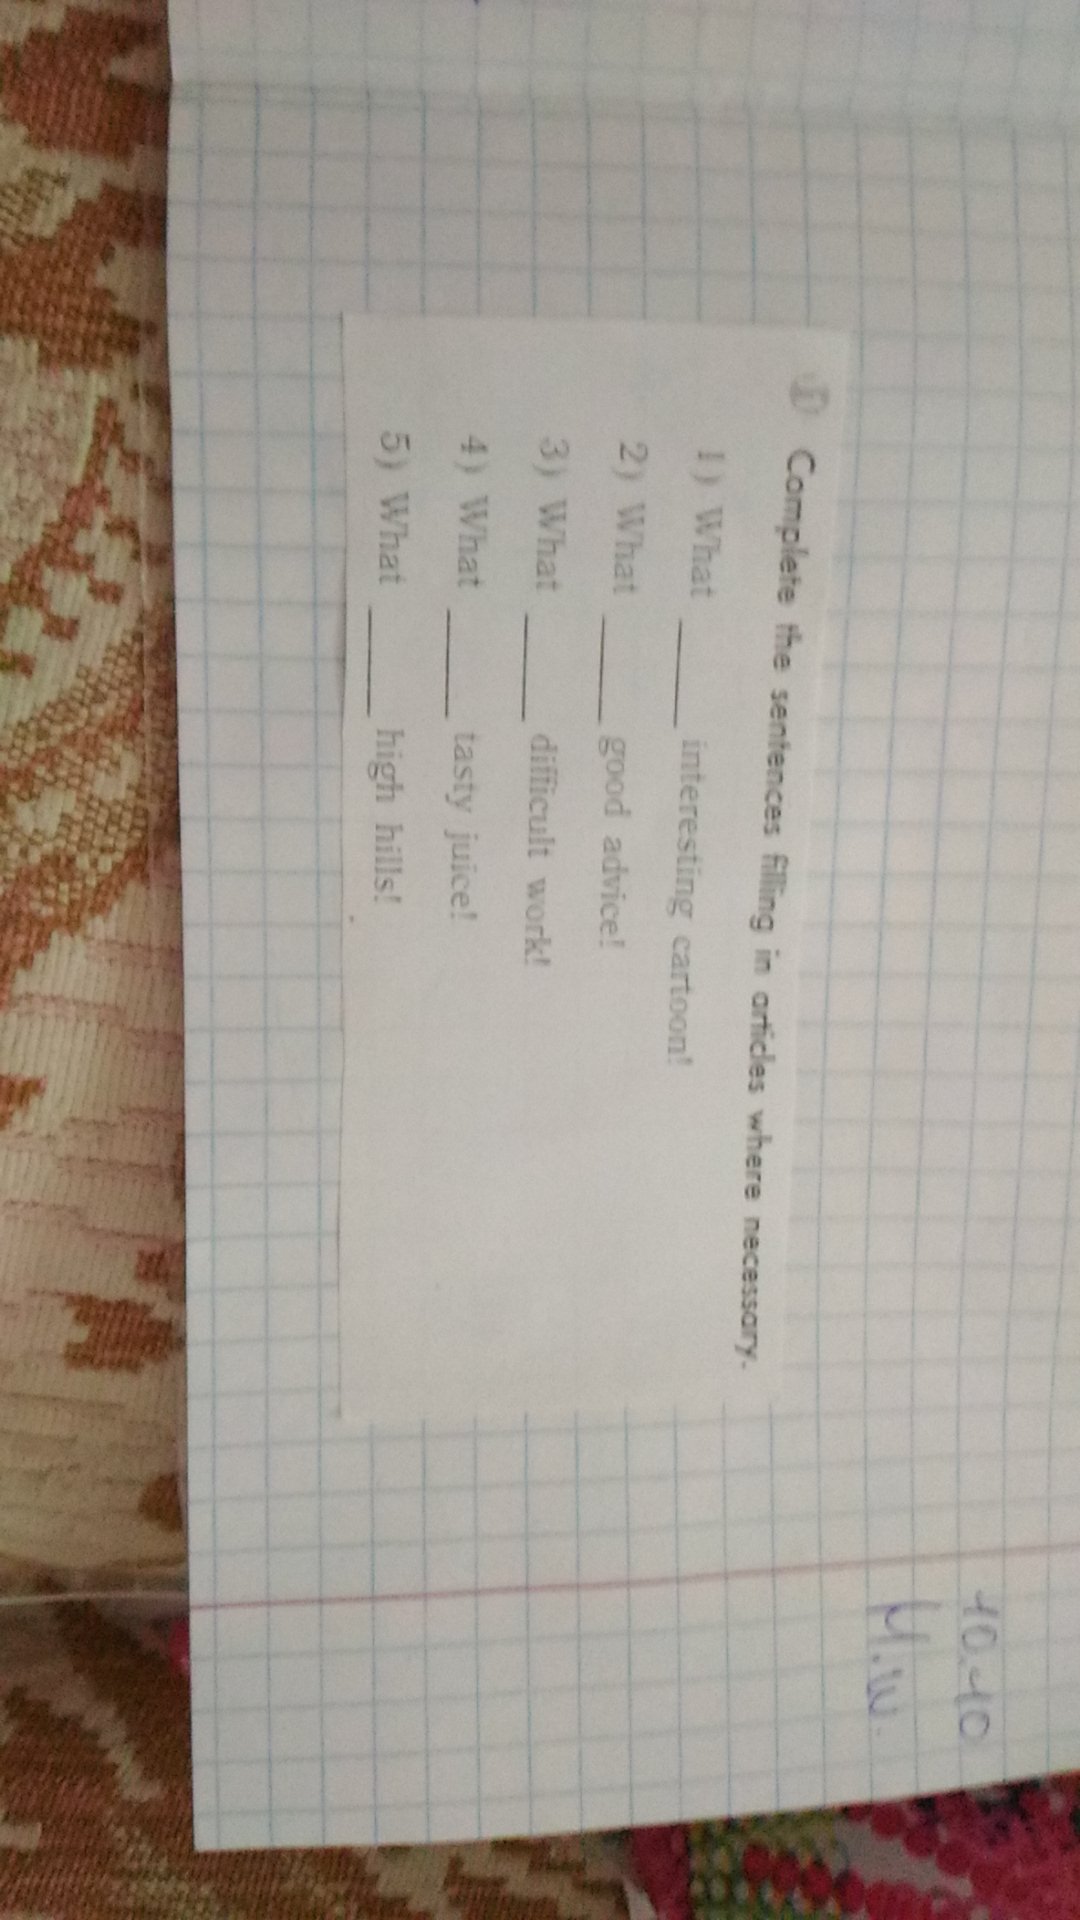 Complete the sentences filling in articles where necessary.
1) What ____ interesting cartoon!
2) What ____ good advice!
3) What ____ difficult work!
4) What ____ tasty juice!
5) What ____ high hills!
10.10